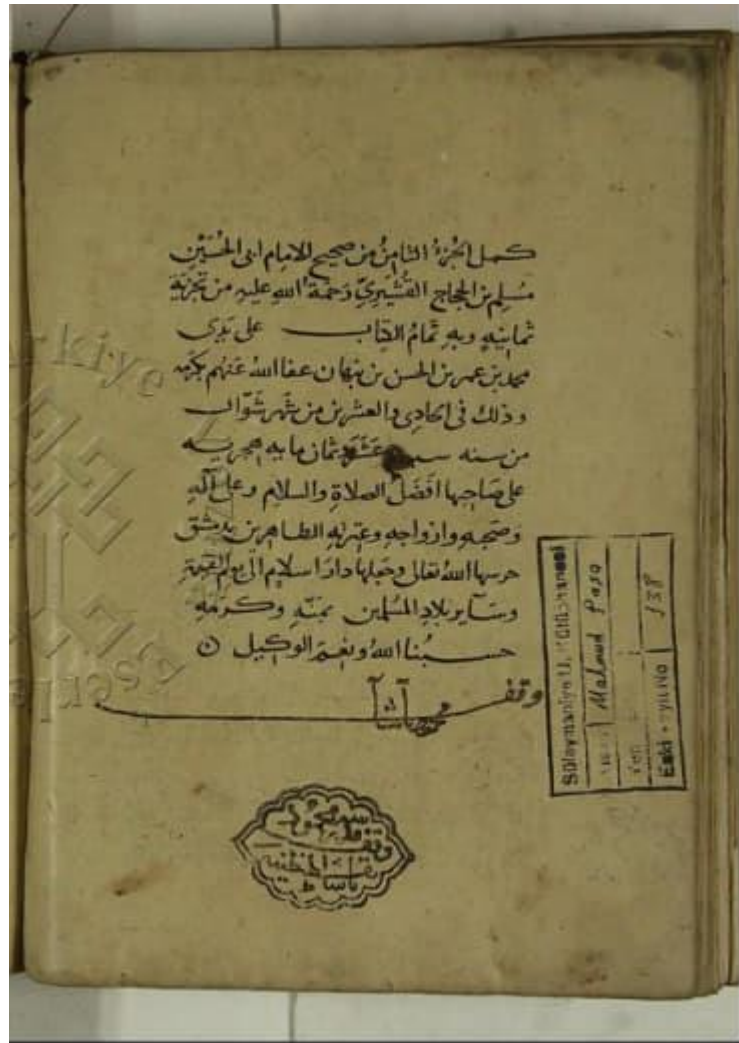 كمل الجُزءُ الثامنُ من صحيح للامام ابى الحُسَيْنِ
مُسْلِم بن الحجاج القُشَيرِيّ رَحمَةُ اللهِ عليهِ من تجْزِيَةِ
ثمانيَهٍ وبهِ تمَامُ الكِتَاب على يَدِى
محمد بن عمر بن الحسن بن نبهان عفا اللهُ عَنهُم بكرَمِه
وذلك فى الحادِى والعشرين من شهرِ شَوّال
من سنه عَشَرَ ثمان مايه هجريه
على صَاحِبها افضَلُ الصلاةِ والسلامِ وعلى آلهِ
وصَحبهِ وازواجهِ وعترتهِ الطاهرين بدمشق
حرسها اللهُ تعالى وجَعلها دارَ اسلامٍ الى يوم القيمةِ
وسَاير بلادِ المُسْلمين بمَنِّهِ وكَرَمهِ
حسبُنا اللهُ ونعمَ الوكيل
وقف
محمود پاشا
Süleymaniye U. Kütüphanesi
Mahmud Paşa
Yeni
Eski Kayıt No 138